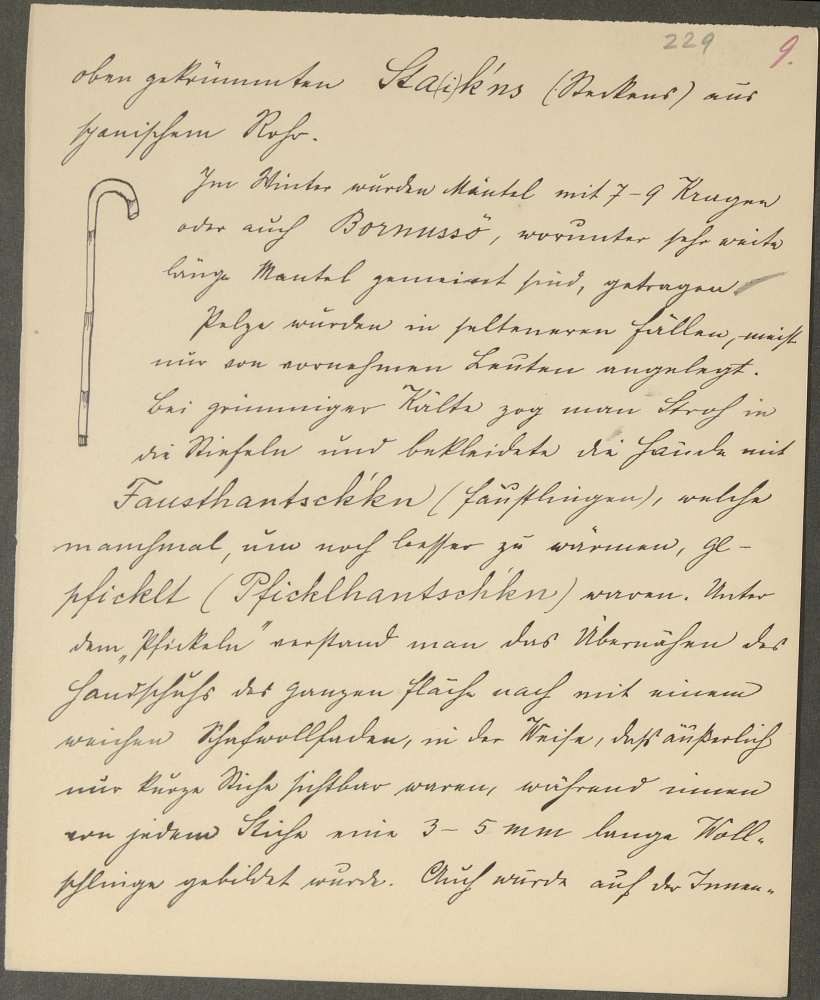 229 9.
oben gekrümmten Sta(i)k'ns (Steckens) aus
spanischem Rohr.
Im Winter wurden Mäntel mit 7–9 Kragen
oder auch Bornussö, worunter sehr weite
lange Mantel gemeint sind, getragen.
Pelze wurden in selteneren Fällen, meist
nur von vornehmen Leuten angelegt.
Bei grimmiger Kälte zog man Stroh in
die Stiefeln und bekleidete die Hände mit
Fausthantschk'kn (Fäustlingen), welche
manchmal, um noch besser zu wärmen, ge-
pficklt (Pficklhantschk'n) waren. Unter
dem „Pfickeln" verstand man das Übernähen des
Handschuhs der ganzen Fläche nach mit einem
weichen Schafwollfaden, in der Weise, daß äußerlich
nur kurze Stiche sichtbar waren, während innen
von jedem Stiche eine 3–5 mm lange Woll-
schlinge gebildet wurde. Auch wurde auf der Innen-